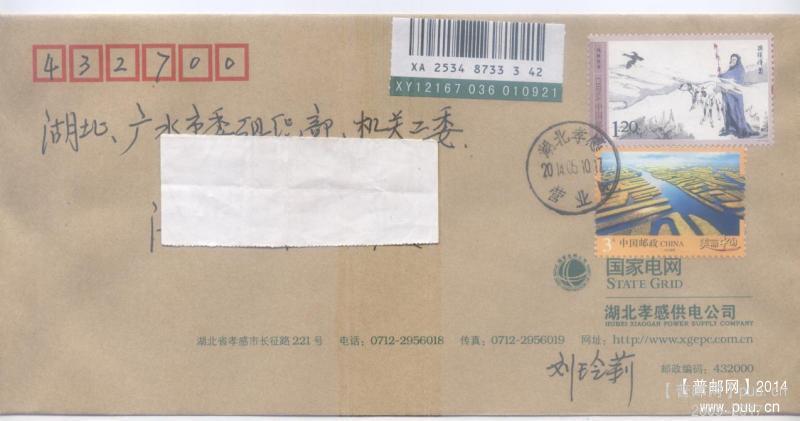 432700
XA 2534 8733 3 42
XY12167 036 010921
湖北、广水市委组织部、机关工委
1.20
湖北孝感
2014.05.10.17
营业
3元
中国邮政 CHINA
美丽中国
国家电网
STATE GRID
湖北孝感供电公司
HUBEI XIAOGAN POWER SUPPLY COMPANY
湖北省孝感市长征路 221 号 电话：0712-2956018 传真：0712-2956019 网址：http://www.xgepc.com.cn
刘玲莉
邮政编码：432000
【普邮网】2014
www.puu.cn